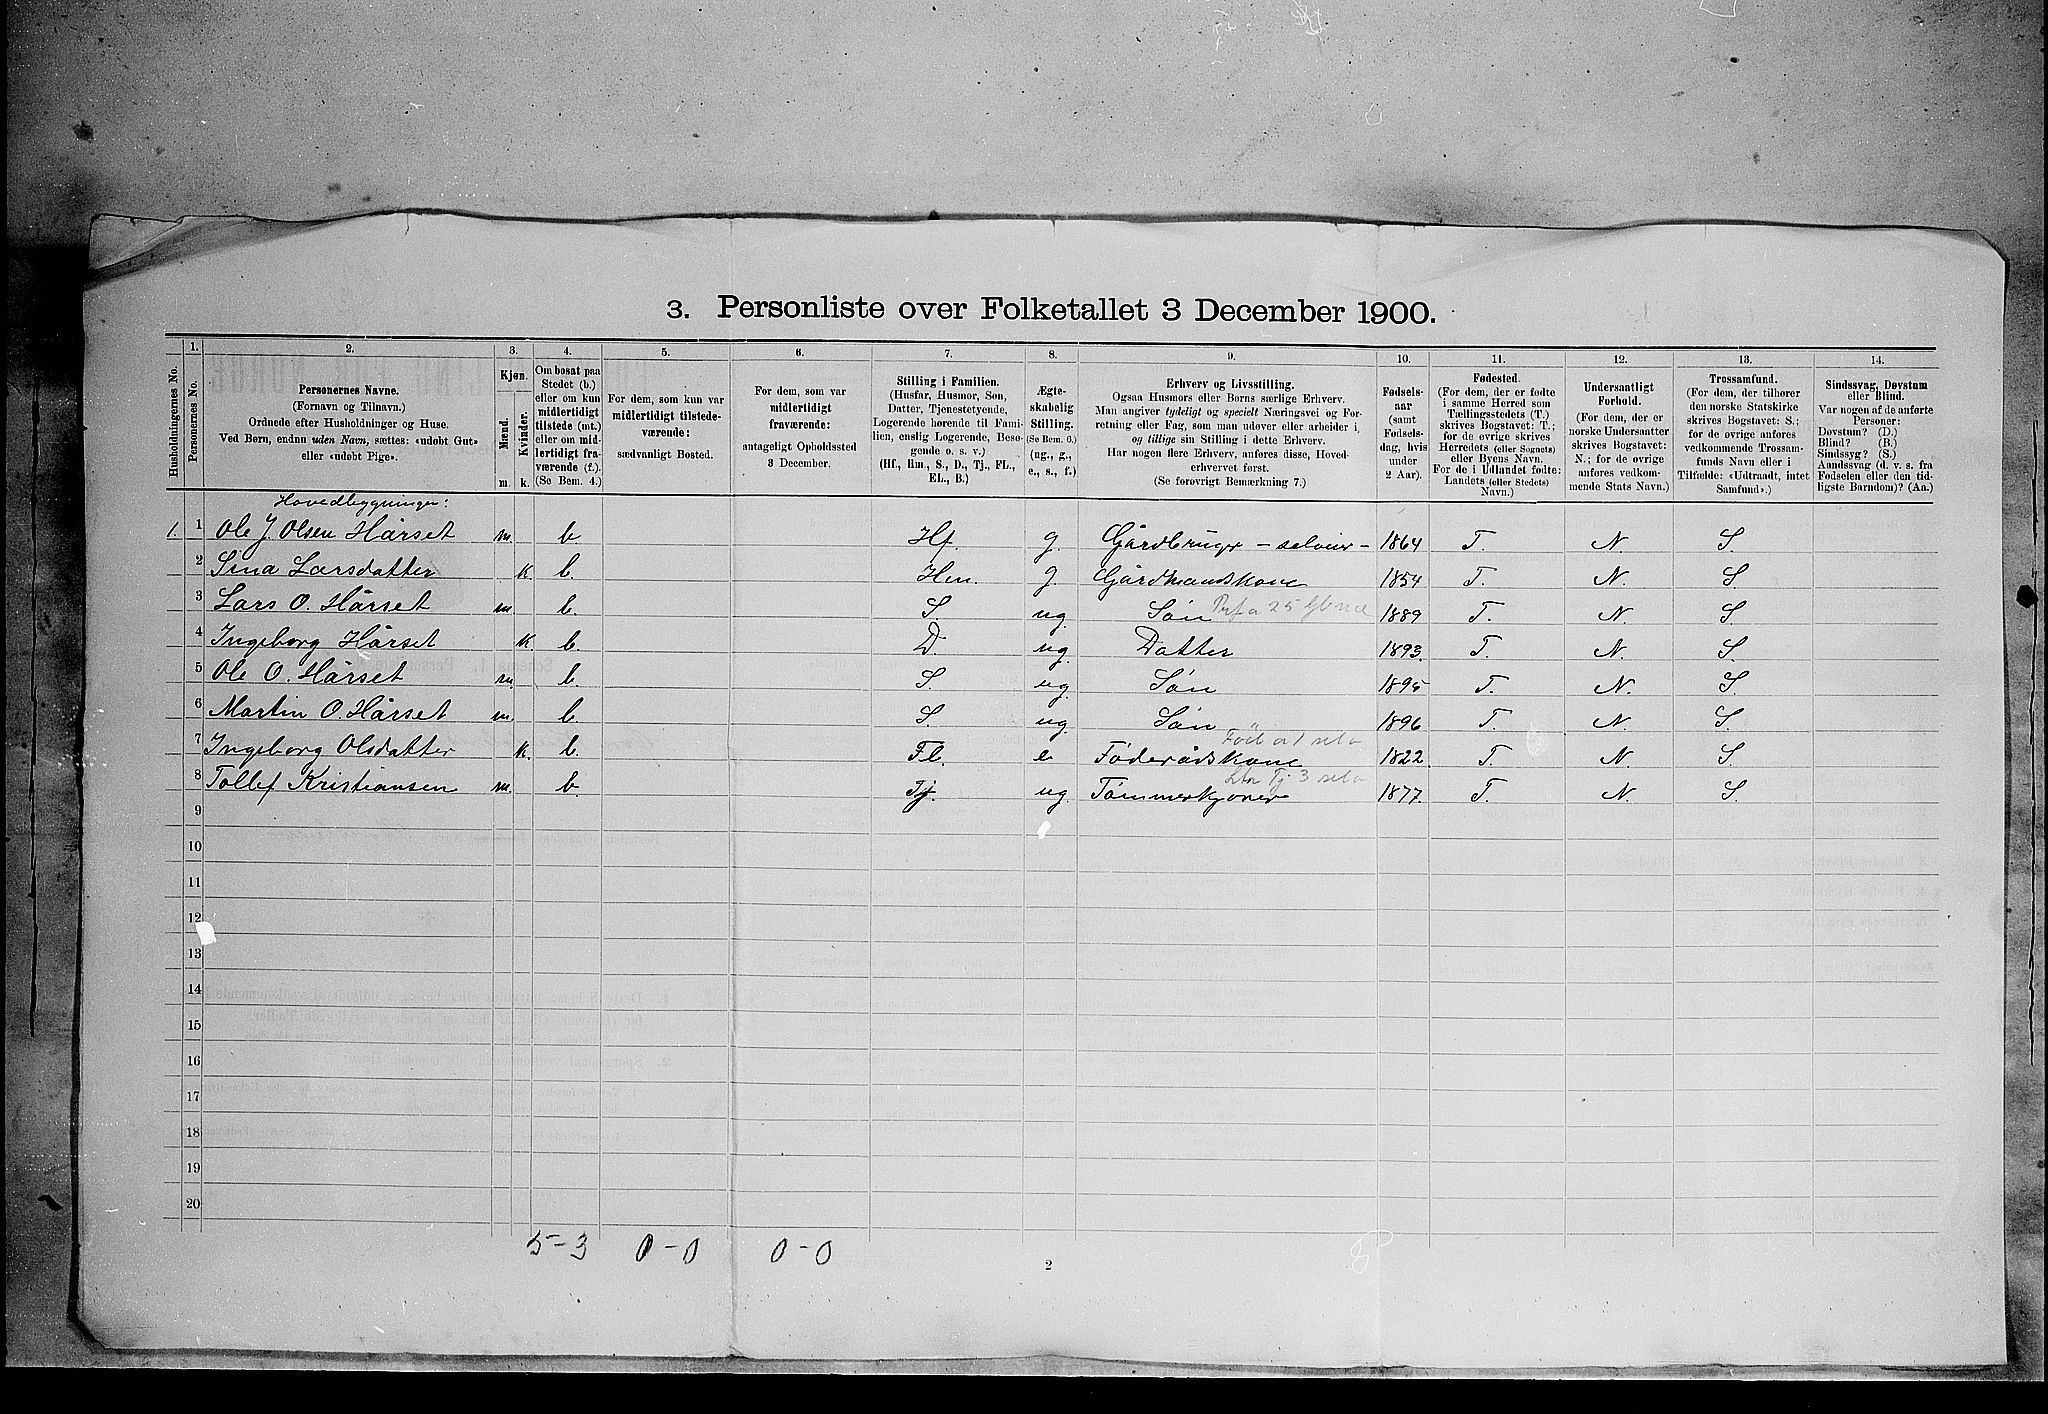 3. Personliste over Folketallet 3 December 1900.
Husholdningernes No.
1.
Personernes No.
2.
Personernes Navne.
(Fornavn og Tilnavn.)
Ordnede efter Husholdninger og Huse.
Ved Børn, endnu uden Navn, sættes: «udøbt Gut»
eller «udøbt Pige».
3.
Kjøn.
Mænd.
Kvinder.
m. k.
4.
Om bosat paa
Stedet (b.)
eller om kun
midlertidigt
tilstede (mt.)
eller om mid-
lertidigt fra-
værende (f.).
(Se Bem. 4.)
5.
For dem, som kun var
midlertidigt tilstede-
værende:
sædvanligt Bosted.
6.
For dem, som var
midlertidigt
fraværende:
antageligt Opholdssted
3 December.
7.
Stilling i Familien.
(Husfar, Husmor, Søn,
Datter, Tjenestetyende,
Logerende hørende til Fami-
lien, enslig Logerende, Besø-
gende o. s. v.)
(Hf., Hm., S., D., Tj., FL.,
EL., B.)
8.
Ægte-
skabelig
Stilling.
(Se Bem. 6.)
(ug., g.,
e., s., f.)
9.
Erhverv og Livsstilling.
Ogsaa Husmors eller Børns særlige Erhverv.
Man angiver tydeligt og specielt Næringsvei og For-
retning eller Fag, som man udøver eller arbeider i,
og tillige sin Stilling i dette Erhverv.
Har nogen flere Erhverv, anføres disse, Hoved-
erhvervet først.
(Se forøvrigt Bemærkning 7.)
10.
Fødsels-
aar
(samt
Fødsels-
dag, hvis
under
2 Aar).
11.
Fødested.
(For dem, der er fødte
i samme Herred som
Tællingsstedets (T.)
skrives Bogstavet: T.;
for de øvrige skrives
Herredets (eller Sognets)
eller Byens Navn.
For de i Udlandet fødte:
Landets (eller Stedets)
Navn.)
12.
Undersaatligt
Forhold.
(For dem, der er
norske Undersaatter
skrives Bogstavet:
N.; for de øvrige
anføres vedkom-
mende Stats Navn.)
13.
Trossamfund.
(For dem, der tilhører
den norske Statskirke
skrives Bogstavet: S.;
for de øvrige anføres
vedkommende Trossam-
funds Navn eller i
Tilfælde: «Udtraadt, intet
Samfund».)
14.
Sindssvag, Døvstum
eller Blind.
Var nogen af de anførte
Personer:
Døvstum? (D.)
Blind? (B.)
Sindssyg? (S.)
Aandssvag (d. v. s. fra
Fødselen eller den tid-
ligste Barndom)? (Aa.)
Hovedbygningen:
1. 1 Ole J. Olsen Hårset m. b. Hf. g. Gårdbruger – selveier – 1864 T. N. S.
2 Sina Larsdatter k b. Hm. g. Gårdmandskone 1854 T. N. S
3 Lars O. Hårset m. b. S. ug. Søn 1889 T. N. S.
4 Ingeborg Hårset k b. D. ug. Datter 1893. T. N. S.
5 Ole O. Hårset m. b. S. ug. Søn 1895 T. N. S.
6 Martin O. Hårset m. b. S. ug. Søn 1896 T. N. S.
7 Ingeborg Olsdatter k. b. Fl. e Føderådskone 1822. T. N. S.
8 Tollef Kristiansen m. b Tj. ug. Tømmerkjører 1877. T. N. S.
9
10
11
12
13
14
15
16
17
18
19
20
5 – 3 0 – 0 0 – 0
2